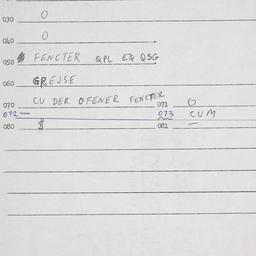 030 0
040 0
050 FENCTER QPL EQ QSG
060 GREJSE
070 CU DER OFENER FENCTER 071 0
072 — 073 CUM
080 081 —